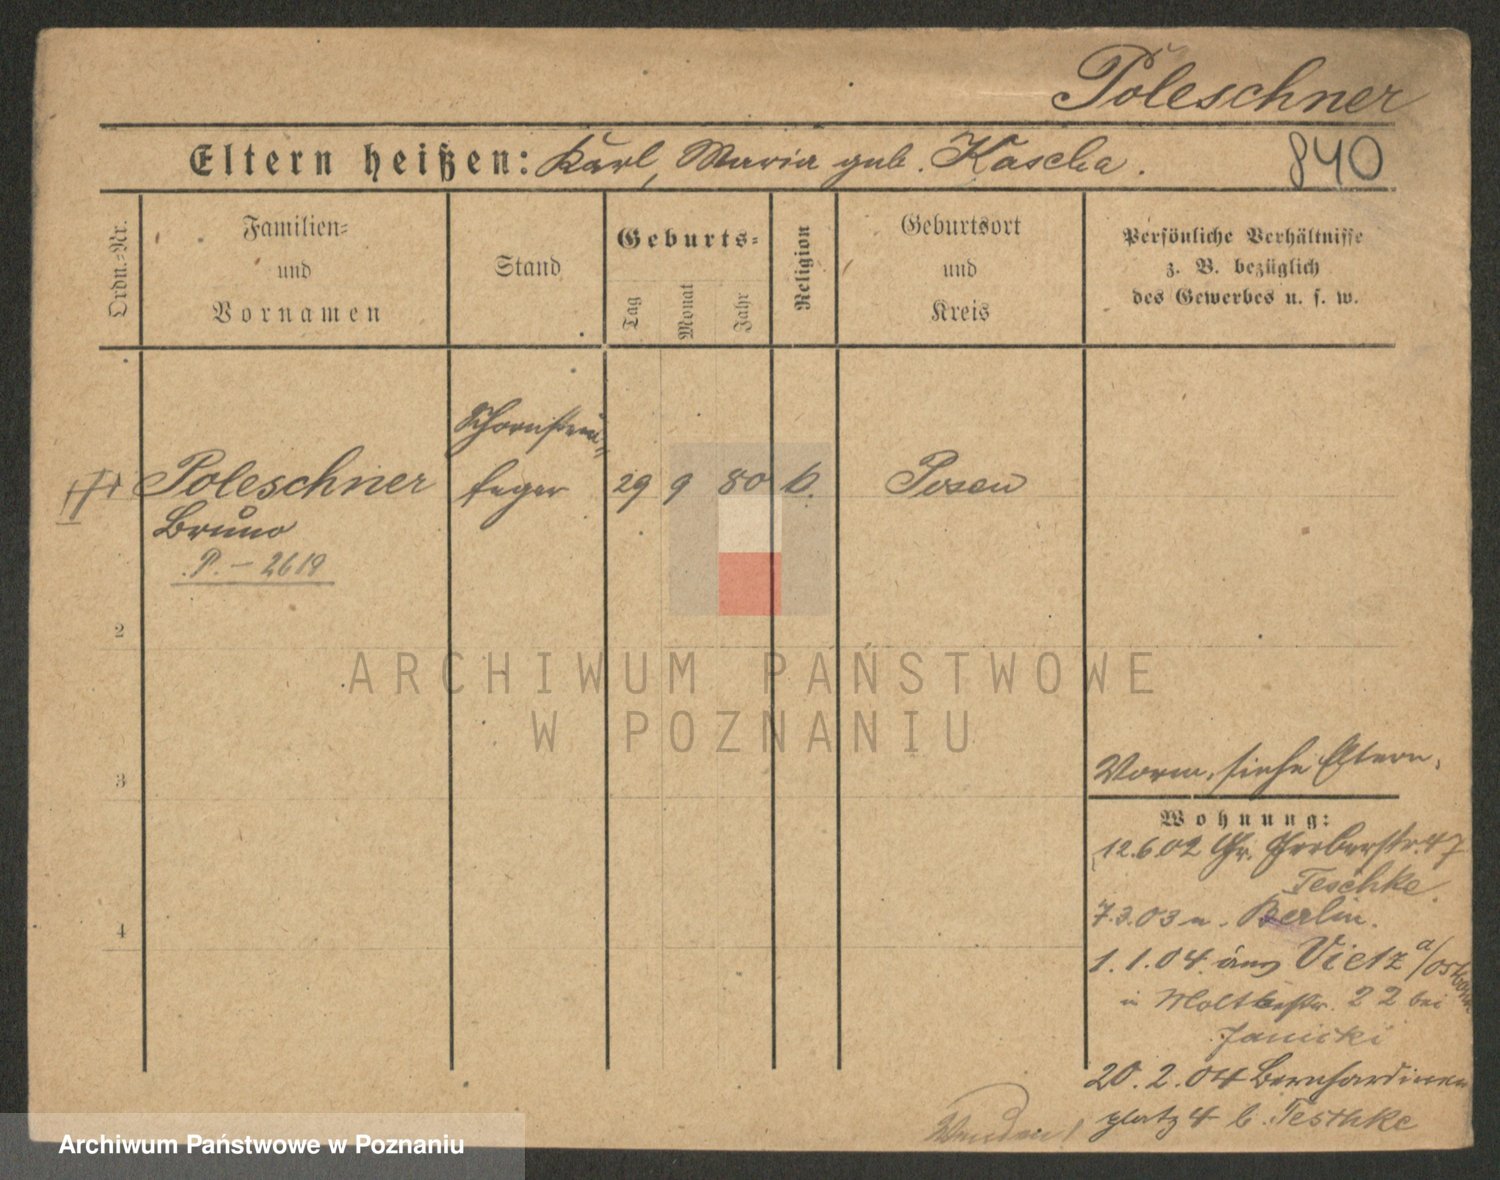 Poleschner
Eltern heißen: Karl, Maria geb. Kascha.
840
Ordn.-Nr.
Familien-
und
Vornamen
Stand
Geburts-
Tag
Monat
Jahr
Religion
Geburtsort
und
Kreis
Persönliche Verhältnisse
z. B. bezüglich
des Gewerbes u. s. w.
Schornstein-
Poleschner
feger
29 9 80 k.
Posen
Bruno
P. - 2618
2
ARCHIWUM PAŃSTWOWE
W POZNANIU
3
Vorm. siehe Eltern.
Wohnung:
12.6.02 Gr. Gerberstr. 47
Teschke.
4
7.3.03 n. Berlin.
1.1.04 aus Vietz a/Ostbahn
in Moltkestr. 22 bei
Janicki
20.2.04 Bernhardinen
platz 4 b. Teschke
Wenden!
Archiwum Państwowe w Poznaniu